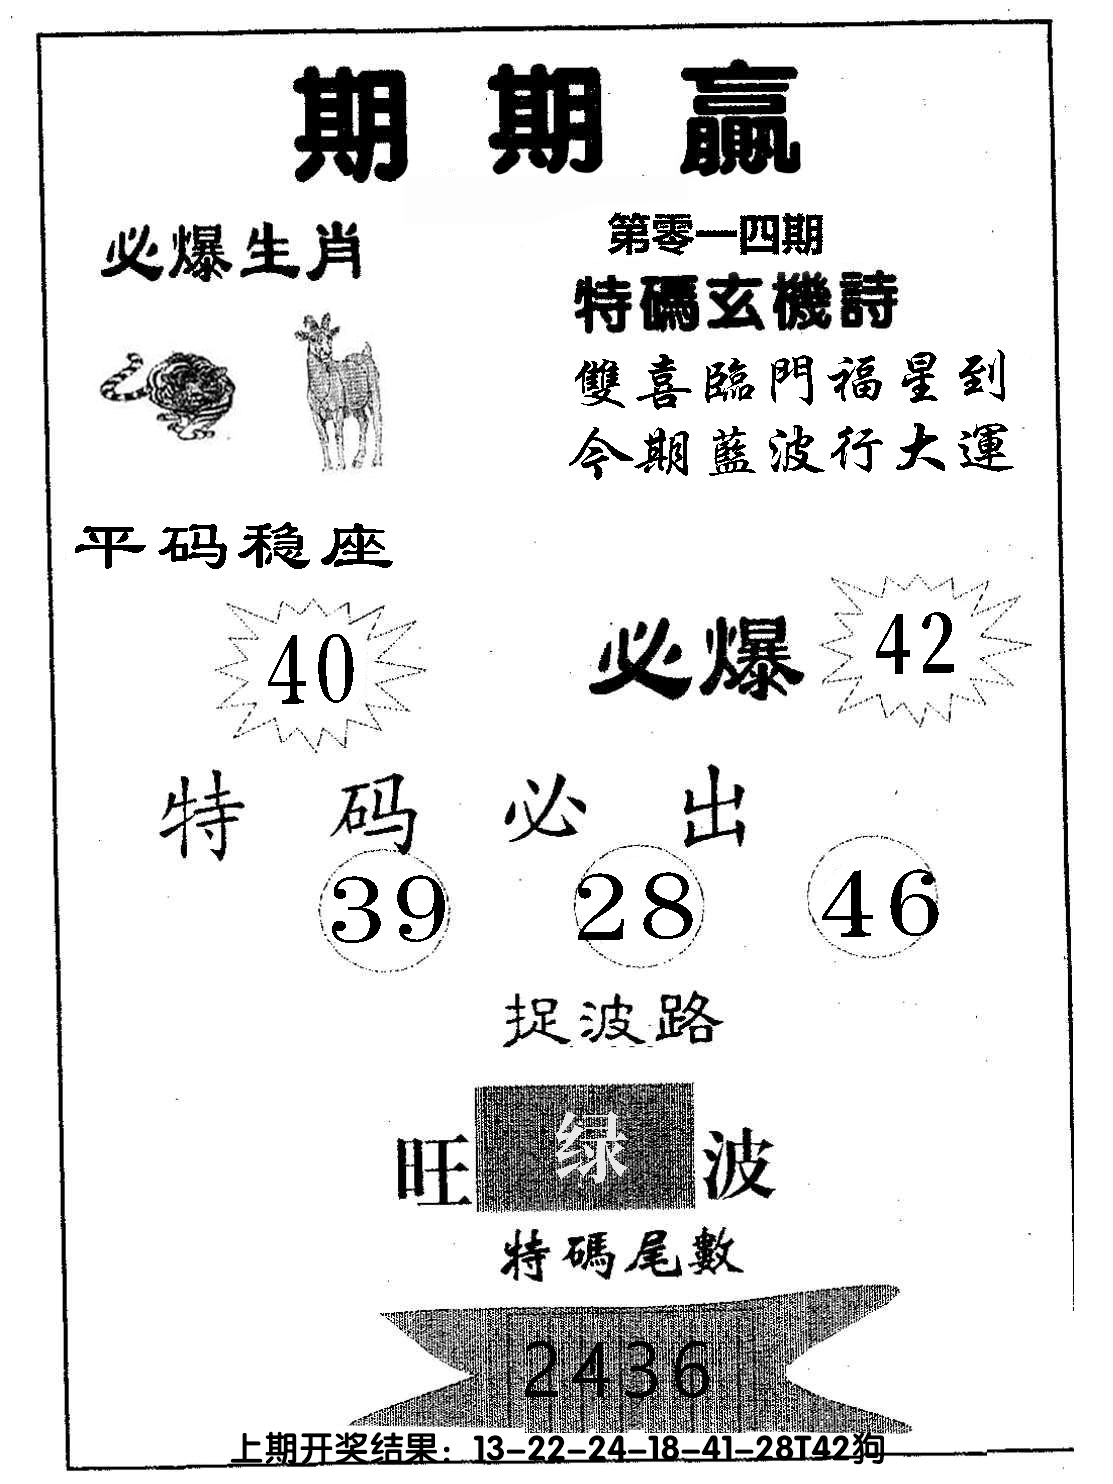 期期赢
必爆生肖
第零一四期
特碼玄機詩
雙喜臨門福星到
今期藍波行大運
平码稳座
40
必爆 42
特码必出
39 28 46
捉波路
旺 绿 波
特碼尾數
2436
上期开奖结果：13-22-24-18-41-28T42狗